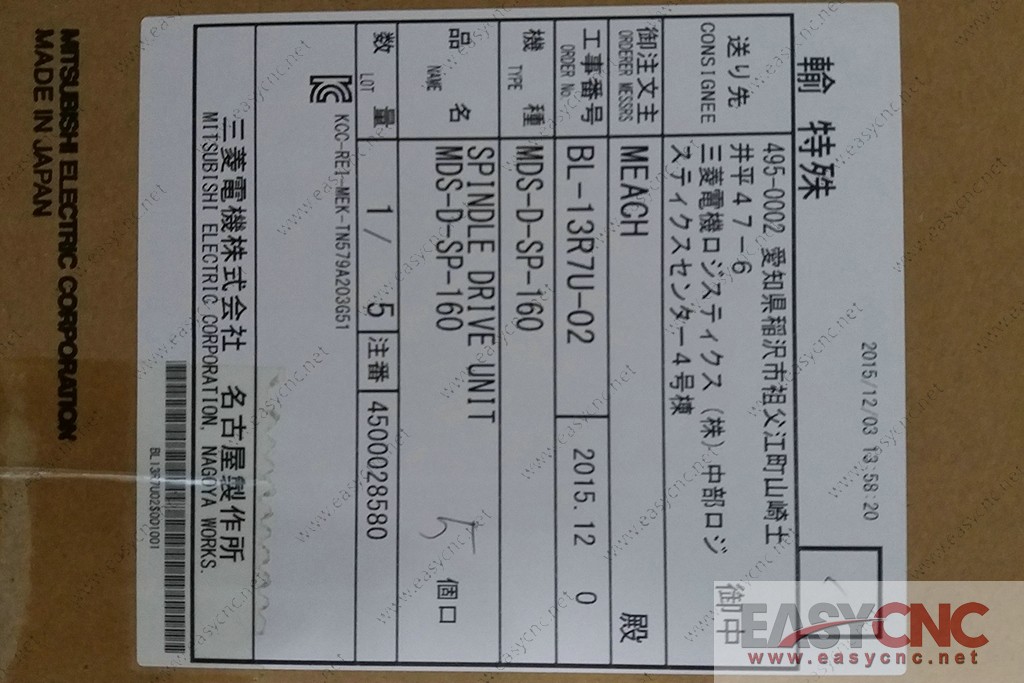 2015/12/03 13:58:20
輸 特殊
送り先
CONSIGNEE
495-0002 愛知県稲沢市祖父江町山崎土
井平47-6
三菱電機ロジスティクス(株)中部ロジ
スティクスセンター4号棟
御中
御注文主
ORDERER MESSRS
MEACH
殿
工事番号
ORDER No.
BL-13R7U-02
2015.12 0
機 種
TYPE
MDS-D-SP-160
品 名
NAME
SPINDLE DRIVE UNIT
MDS-D-SP-160
5 個口
数 量
LOT
1/ 5
注番
4500028580
KCC-REI-MEK-TN579A203G51
三菱電機株式会社 名古屋製作所
MITSUBISHI ELECTRIC CORPORATION, NAGOYA WORKS.
BL13R7U02S001001
MITSUBISHI ELECTRIC CORPORATION
MADE IN JAPAN
EASYCNC
www.easycnc.net